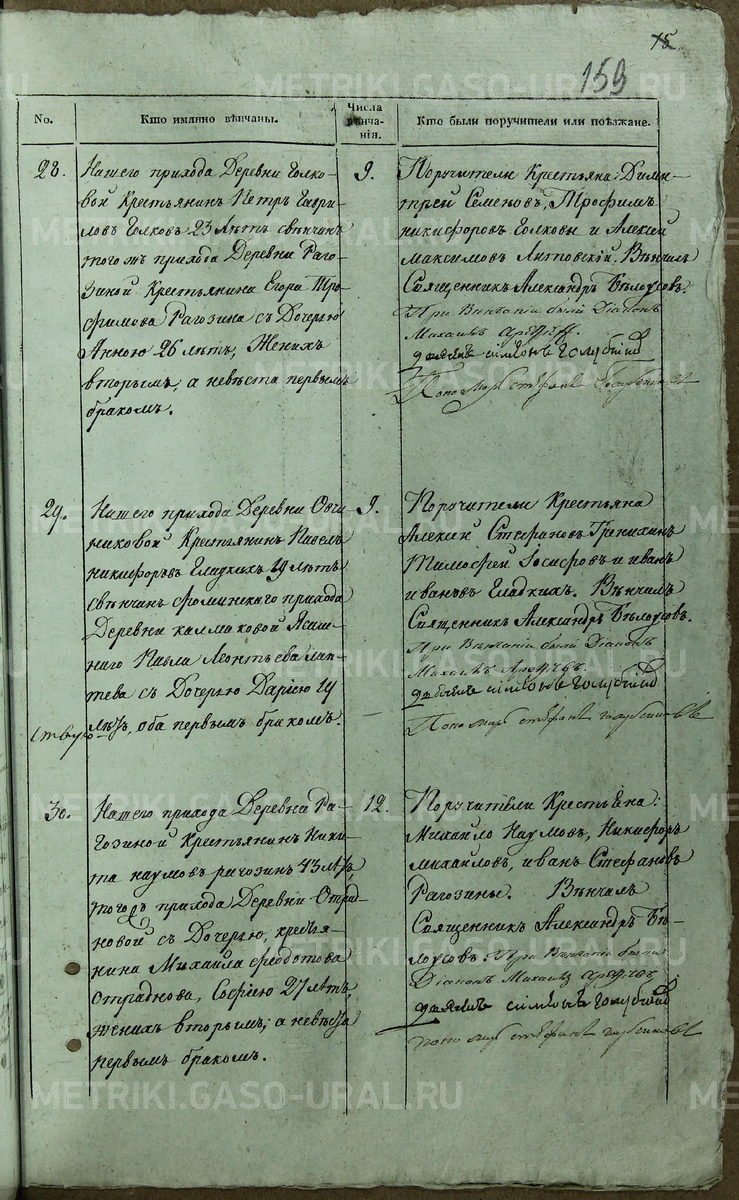 15
159
No.
Кто имянно вѣнчаны.
Числа вѣнча-
нія.
Кто были поручители или поѣзжане.
28.
Нашего прихода Деревни Голко-
вой Крестьянинъ Петръ Гаври-
ловъ Голковъ 23 лѣтъ свѣнчанъ
тогожъ прихода Деревни Раго-
зиной Крестьянина Егора Тро-
фимова Рагозина съ Дочерью
Анною 26 лѣтъ, Женихъ
вторымъ, а невѣста первымъ
бракомъ.
9.
Поручители Крестьяна: Дими-
трей Семеновъ, Трофимъ
никифоровъ Голковы и Алексей
Максимовъ Литовскій. Вѣнчалъ
Священникъ Александръ Бѣлоусовъ.
При Вѣнчаніи были Діаконъ
Михаилъ
дьячекъ симионъ голубчий
Пономарь стефанъ
29.
Нашего прихода Деревни Овчи-
никовой Крестьянинъ Павелъ
никифоровъ Гладкихъ 19 лѣтъ
свѣнчанъ фоминскаго прихода
Деревни калмаковой Ясаш-
наго Павла Леонтьева лап-
тева съ Дочерью Дарьею 19
лѣтъ, оба первымъ бракомъ.
9.
Поручители Крестьяна
Алексий Стефановъ Гренихинъ
Тимофей Іосифовъ и иванъ
ивановъ Гладкихъ. Вѣнчалъ
Священникъ Александръ Бѣлоусовъ.
При Вѣнчаніи были Діаконъ
Михаилъ
дьячекъ симионъ голубчий
Пономарь стефанъ
30.
Нашего прихода Деревни Ра-
гозиной Крестьянинъ Ники-
та наумовъ рагозинъ 43 лѣтъ,
тогожъ прихода Деревни Отрад-
новой съ Дочерью, крестья-
нина Михаила федотова
отраднова, Софіею 27 лѣтъ,
женихъ вторымъ, а невѣста
первымъ бракомъ.
12.
Поручители Крестьяна:
Михайло Наумовъ, Никифоръ
михайловъ, иванъ Стефановъ
Рагозины. Вѣнчалъ
Священникъ Александръ Бѣ-
лоусовъ. При Вѣнчаніи были
Діаконъ Михаилъ
дьячекъ симионъ голубчий
пономарь стефанъ
METRIKI.GASO-URAL.RU